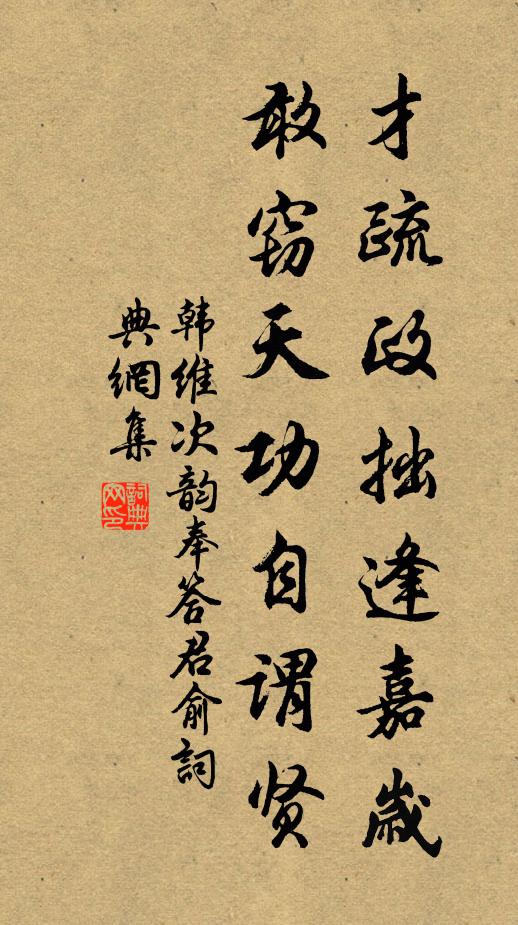 才疏政拙逢嘉歲
敢窃天功自谓贤
韩维次韵奉答君俞詞
典網集
詞典
网印